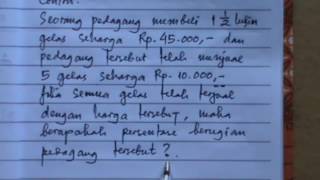 Contoh:
Seorang pedagang membeli 1 1/2 lusin
gelas seharga Rp. 45.000,- dan
pedagang tersebut telah menjual
5 gelas seharga Rp. 10.000,-
Jika semua gelas telah terjual
dengan harga tersebut, maka
berapakah persentase kerugian
pedagang tersebut?.